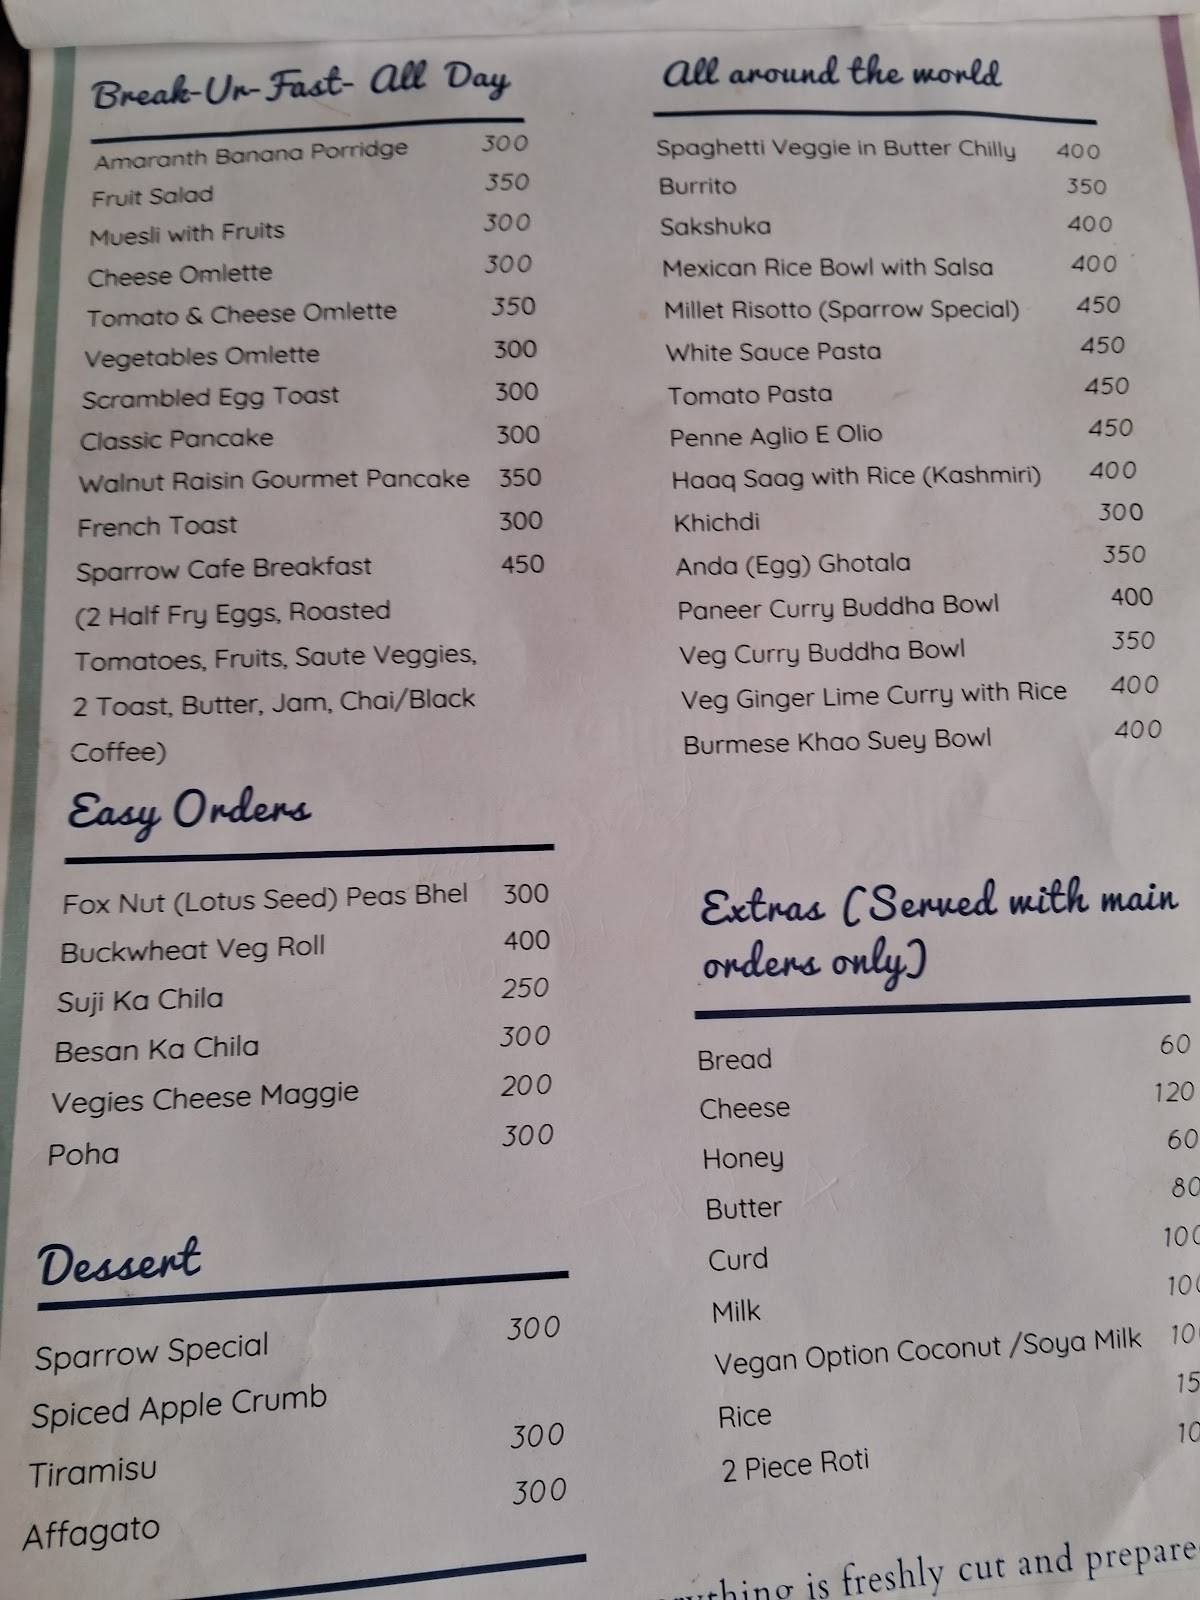 Break-Ur-Fast- All Day
Amaranth Banana Porridge 300
Fruit Salad 350
Muesli with Fruits 300
Cheese Omlette 300
Tomato & Cheese Omlette 350
Vegetables Omlette 300
Scrambled Egg Toast 300
Classic Pancake 300
Walnut Raisin Gourmet Pancake 350
French Toast 300
Sparrow Cafe Breakfast 450
(2 Half Fry Eggs, Roasted
Tomatoes, Fruits, Saute Veggies,
2 Toast, Butter, Jam, Chai/Black
Coffee)
Easy Orders
Fox Nut (Lotus Seed) Peas Bhel 300
Buckwheat Veg Roll 400
Suji Ka Chila 250
Besan Ka Chila 300
Vegies Cheese Maggie 200
Poha 300
Dessert
Sparrow Special 300
Spiced Apple Crumb
Tiramisu 300
Affagato 300
All around the world
Spaghetti Veggie in Butter Chilly 400
Burrito 350
Sakshuka 400
Mexican Rice Bowl with Salsa 400
Millet Risotto (Sparrow Special) 450
White Sauce Pasta 450
Tomato Pasta 450
Penne Aglio E Olio 450
Haaq Saag with Rice (Kashmiri) 400
Khichdi 300
Anda (Egg) Ghotala 350
Paneer Curry Buddha Bowl 400
Veg Curry Buddha Bowl 350
Veg Ginger Lime Curry with Rice 400
Burmese Khao Suey Bowl 400
Extras (Served with main
orders only)
Bread 60
Cheese 120
Honey 60
Butter 80
Curd
Milk
Vegan Option Coconut /Soya Milk
Rice
2 Piece Roti
is freshly cut and